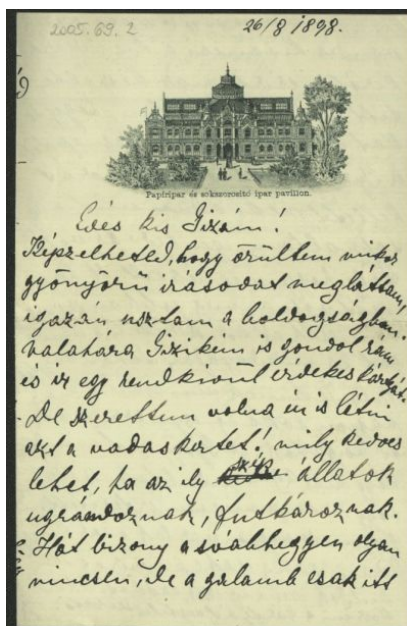 2005.69.2
26/8 1898.
Papíripar és sokszorosító ipar pavillon.
Édes kis Gizám!
Képzelheted, hogy örültem mikor
gyönyörü irásodat megláttam,
igazán usztam a boldogságban.
valahára Gizikém is gondol rám
és ir egy rendkivül érdekes kártyát.
De szerettem volna én is látni
azt a vadaskertet! mily kedves
lehet, ha az ily állatok
ugrándoznak, futkároznak.
Hát bizony a svábhegyen olyan
nincsen, de a galamb csak itt